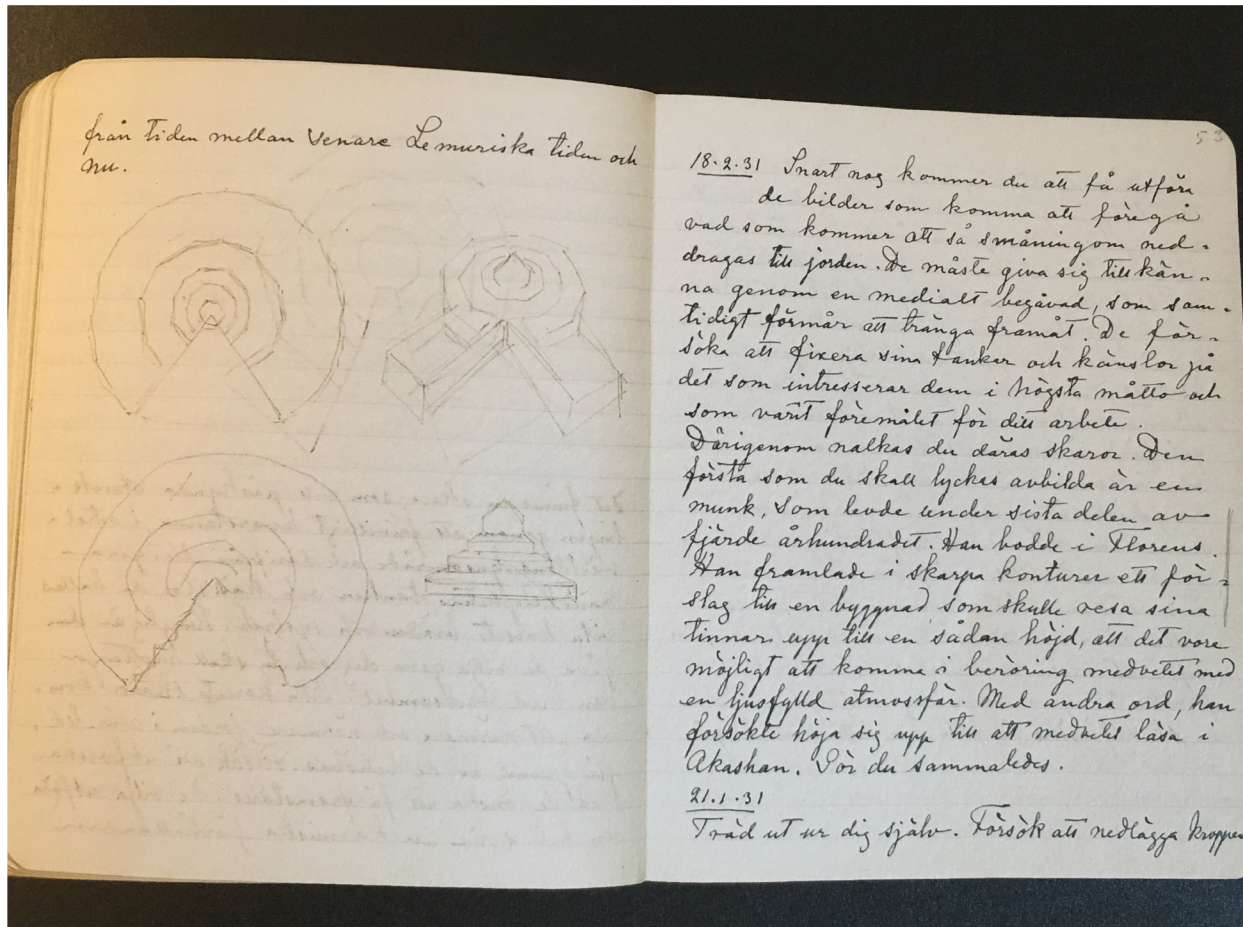 från tiden mellan senare Lemuriska tiden och
nu.
53
18.2.31 Snart nog kommer du att få utföra
de bilder som komma att föregå
vad som kommer att så småningom ned-
dragas till jorden. De måste giva sig tillkän-
na genom en medialt begåvad, som sam-
tidigt förmår att tränga framåt. De för-
söka att fixera sina tankar och känslor på
det som intresserar dem i högsta måtto och
som varit föremålet för ditt arbete.
Därigenom nalkas du däras skaror. Den
första som du skall lyckas avbilda är en
munk, som levde under sista delen av
fjärde århundradet. Han bodde i Florens.
Han framlade i skarpa konturer ett för-
slag till en byggnad som skulle resa sina
tinnar upp till en sådan höjd, att det vore
möjligt att komma i beröring medvetet med
en ljusfylld atmosfär. Med andra ord, han
försökte höja sig upp till att medvetet läsa i
Akashan. Gör du sammaledes.
21.1.31
Träd ut ur dig själv. Försök att nedlägga kroppen